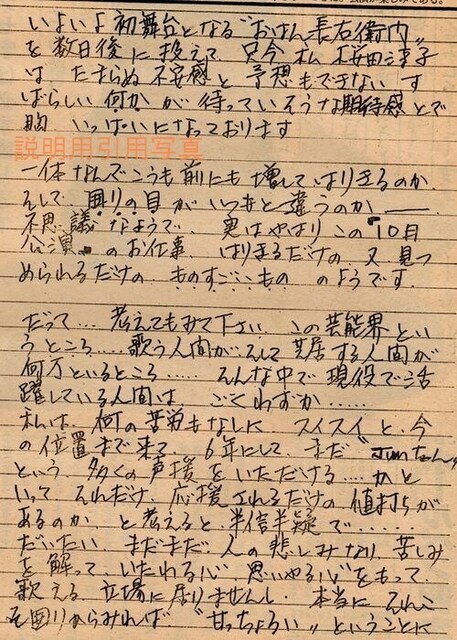 いよいよ初舞台となる"おはん長右衛門"
を数日後に控えて、只今 私 桜田淳子
は たまらぬ不安感と 予想もできない す
ばらしい何かが待っていそうな期待感とで
胸 いっぱいになっております
説明用引用写真
一体なんでこうも前にも増してはりきるのか、
そして 周りの目がいつもと違うのか――
不思議なようで、実はやはりこの10月
公演 のお仕事、はりきるだけの、又、見つ
められるだけの ものすごいもの のようです。
だって…… 考えてもみて下さい、この芸能界とい
うところ……歌う人間が、そして芝居する人間が
何万といるところ…… そんな中で 現役で活
躍している人間は、ごくわずか……
私は、何の苦労もなしに スイスイと、今
の位置まで来て、6年にして、まだ
という 多くの声援をいただける…… かと
いって それだけ、応援されるだけの 値打ちが
あるのか と考えると、半信半疑で……
だいたい まだまだ、人の悲しみなり、苦しみ
を解って、いたわる心、思いやる心"をもって、
歌える立場に居りませんし、本当にそれこ
そ周りからみれば、"甘っちょろい"ということに